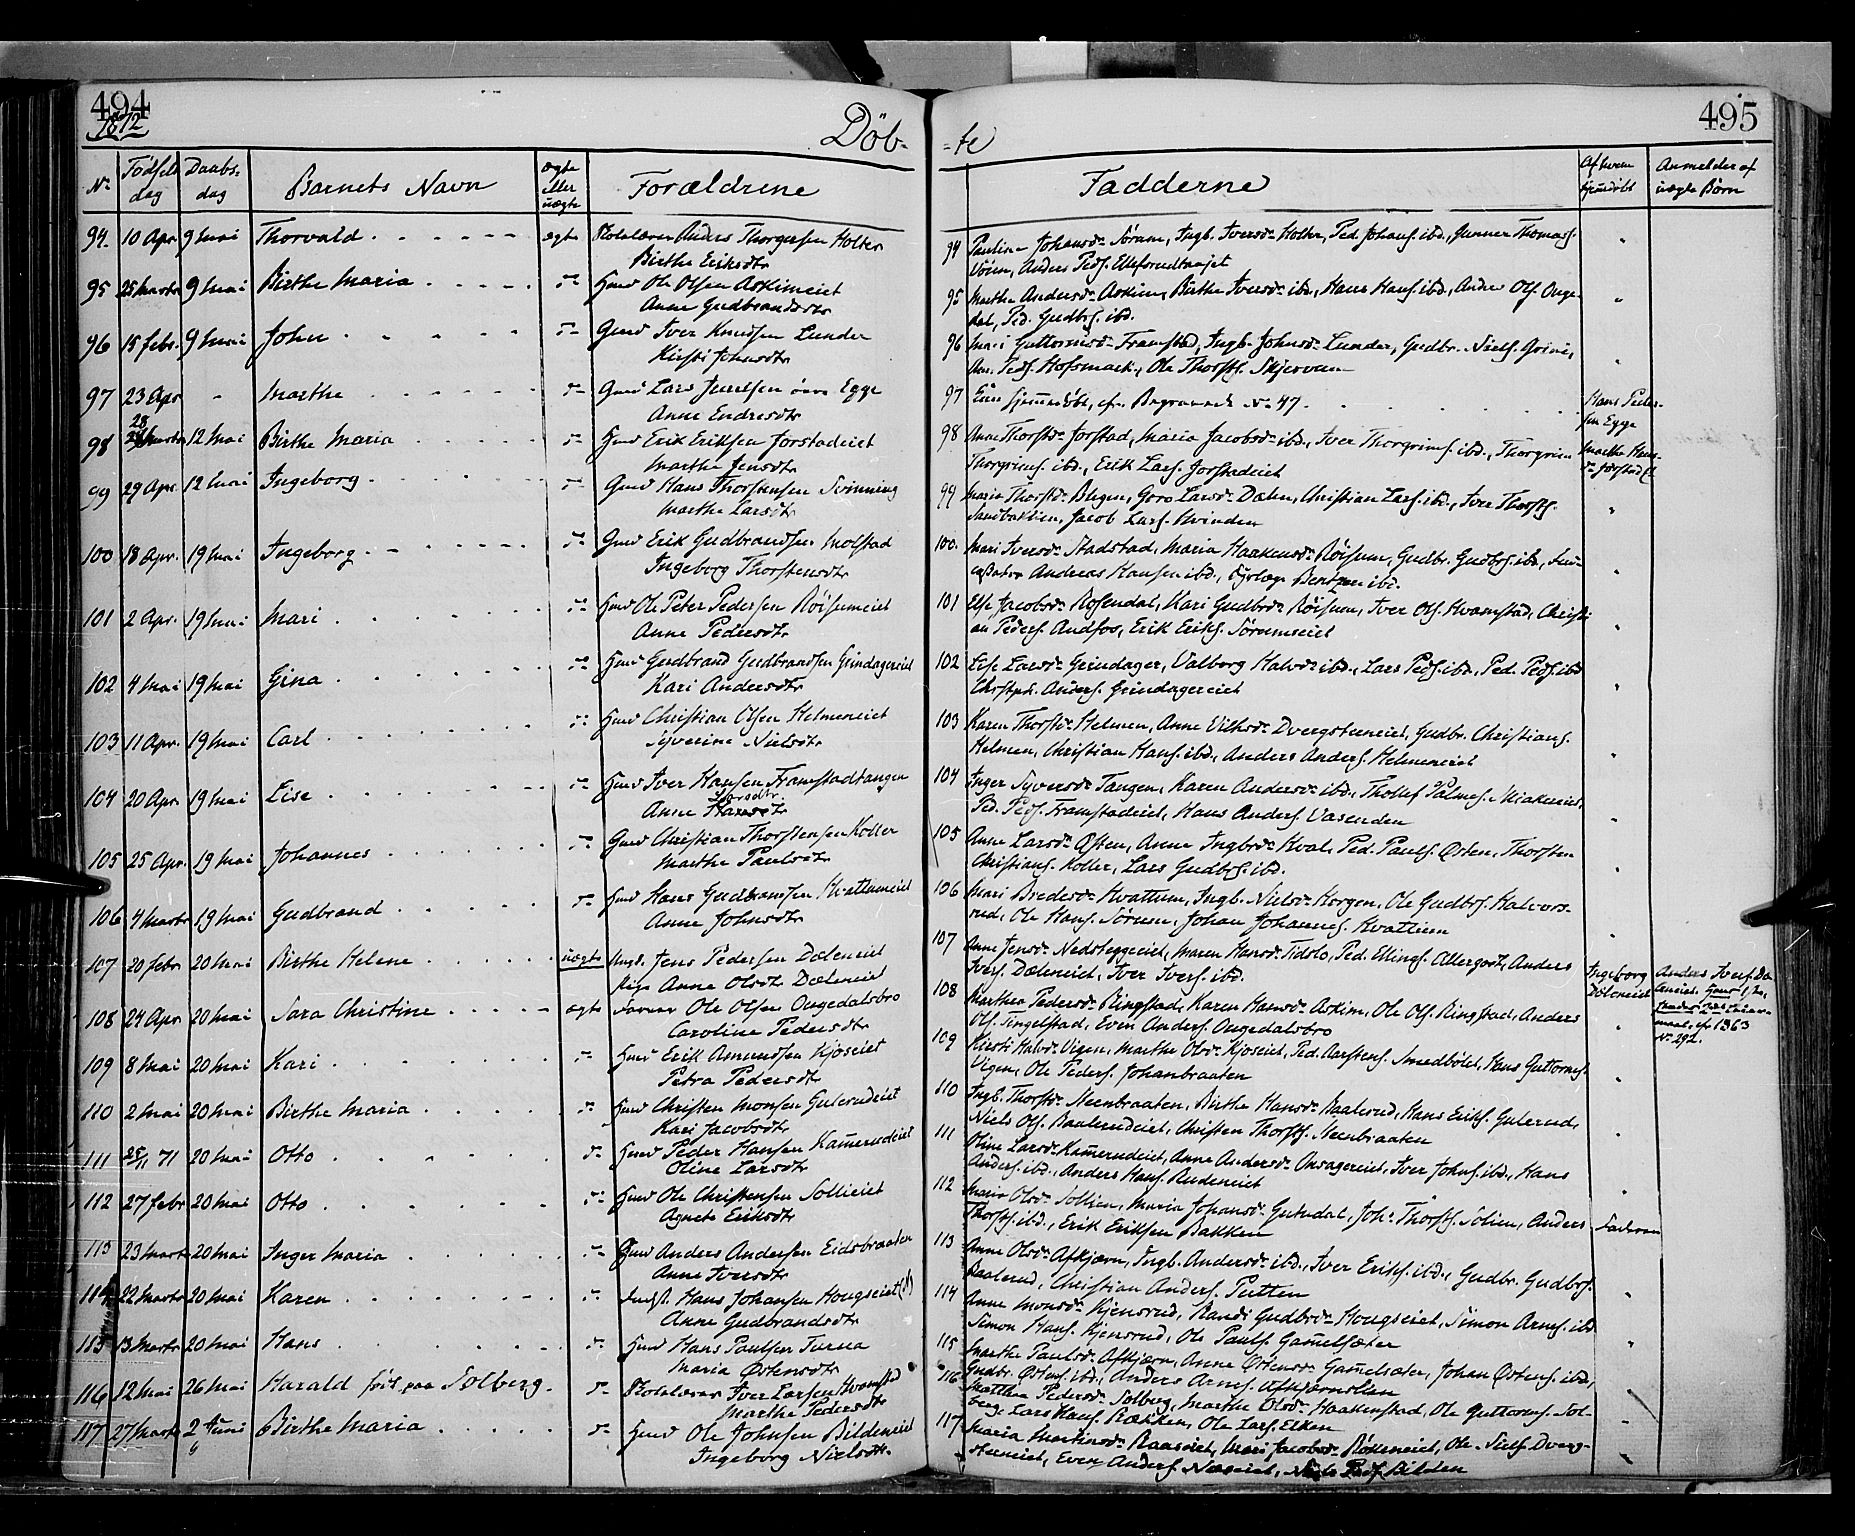 494
1872
Döb-
No
Födsels dag
Daabs-dag
Barnets Navn
ægte eller uægte
Forældrene
94. 10 Apr 9 Mai Thorvald ægte Skolelærer Anders Thorgersen Holter
Birthe Eriksdtr
95 25 Marts 9 Mai Birthe Maria Huusd Ole Olsen Askimeiet
Anne Gudbrandsdtr
96 15 Febr. 9 Mai John Gmd Iver Knudsen Lunder
Kirsti Johnsdtr
97 23 Apr - Marthe Gmd Lars Juulsen övre Egge
Anne Endresdtr
98 28 Marts 12 Mai Birthe Maria Erik Eriksen Jorstadeiet
Marthe Jensdtr
99 29 Apr. 12 Mai Ingeborg Gmd Hans Thorstensen Svinning
Marthe Larsdtr
100 18 Apr. 19 Mai Ingeborg Gmd Erik Gudbrandsen Molstad
Ingeborg Thorstensdtr
101 2 Apr. 19 Mai Mari Ole Peter Pedersen Röisumeiet
Anne Pedersdtr
102 4 Mai 19 Mai Gina Gudbrand Gudbrandsen Grindagereiet
Kari Andersdtr
103 11 Apr. 19 Mai Carl Christian Olsen Helmeneiet
Syverine Nielsdtr
104 20 Apr 19 Mai Lise Iver Hansen Framstadtangen
Larsdtr
Anne
105 25 Apr. 19 Mai Johannes Gmd Christian Thorstensen Koller
Marthe Paulsdtr
106 4 Marts 19 Mai Gudbrand Hans Gudbrandsen Kvattumeiet
Anne Johnsdtr
107 20 Febr 20 Mai Birthe Helene uægte Ungk. Jens Pedersen Dæleneiet
Pige Anne Olsdtr Dæleneiet
108 24 Apr 20 Mai Sara Christine ægte Ole Olsen Onsgedalsbro
Caroline Pedersdtr
109 8 Mai 20 Mai Kari Erik Amundsen Kjoseiet
Petra Pedersdtr
110 2 Mai 20 Mai Birthe Maria Christen Monsen Gulerudeiet
Kari Jacobsdtr
111 25/11 71 20 Mai Otto Peder Hansen Kamerudeiet
Oline Larsdtr
112 27 Febr 20 Mai Otto Ole Christensen Sollieiet
Agnete Eriksdtr
113 23 Marts 20 Mai Inger Maria Anders Andersen Eidsbraaten
Anne Iversdtr
114 22 Marts 20 Mai Karen Hans Johansen Hougseiet (?)
Anne Gudbrandsdtr
115 13 Marts 20 Mai Hans Hans Paulsen Turua
Maria Østensdtr
116 12 Mai 26 Mai Harald föd paa Solberg. Skolelærer Iver Larsen Hvamstad
Marthe Pedersdtr
117 27 Marts 2 Juni Birthe Maria Ole Johnsen Bildeneiet
Ingeborg Nielsdtr.
495
-te
Fadderne
Af hvem hjemmedöbt
Anmelder af uægte Börn
94 Pauline Johansdr Sörum, Ingb. Iversdr Holter, Ped. Johans. ibd., Gunner Thomass.
Vöien, Anders Peds.
95 Marthe Andersdr Askim, Birthe Iversdr ibd., Hans Hans. ibd., Anders Ols. Onsge-
dal, Ped. Gudbrs. ibd.
96 Mari Guttormsdr Framstad, Ingb. Johnsdr Lunder, Gudbr. Niels. Grini,
Peds. Hofsmark, Ole Thorsts. Skjervum
97 Hjemmedöbt, cfr. Begravede No 47. Hans Peder-
sen Egge
98 Anne Thorstdr Jorstad, Maria Jacobsdr ibd., Iver Thorgrims. ibd., Thorgrim Marthe Hans-
Thorgrims. ibd., Erik Lars. Jorstadeiet dr Jorstadeiet
99 Maria Thorstdr Bilgen, Goro Larsdr Dælen, Christian Lars. ibd., Iver Thorsts.
Sandbakken, Jacob Lars. Hvinden
100. Mari Iversdr Stadstad, Maria Haakensdr Röisum, Gudbr. Gudbrs. ibd.,
Andreas Hansen ibd., Dyrlæge Bentzen ibd.
101 Else Jacobsdr Rosendal, Kari Gudbrdr Röisum, Iver Ols. Hvamstad, Christi
an Peders. Andfos, Erik Eriks. Sörumseiet
102 Lise Larsdr Grindager, Valborg Halvdr ibd., Lars Peds. ibd., Ped. Peds. ibd
Christoph. Anders. Grindagereiet
103 Karen Thorstdr Helmen, Anne Eriksdr Dvergsteneiet, Gudbr. Christians.
Helmen, Christian Hans. ibd., Anders Anders. Helmeneiet
104 Inger Syversdr Tangen, Karen Andersdr ibd., Thollef Palmes.
Ped. Peds. Framstadeiet, Hans Anders. Vasenden
105 Anne Larsdr Østen, Anne Ingbrdr Hval, Ped. Pauls. Østen, Thorsten
Christians. Koller, Lars Gudbrs. ibd.
106 Mari Bredesdr Kvattum, Ingb. Nielsdr Horgen, Ole Gudbrs. Halvors-
rud, Ole Hans. Sörum, Johan Johannes. Kvattum
107 Anne Jensdr Nedreeggeeiet, Maren Hansdr Tidslo, Ped. Ellings. Allergodt, Anders Ingeborg
Ivers. Dæleneiet, Iver Ivers. ibd. Döleneiet
Anders Ivers. Dæ-
leneiet.
cfr 1863
No 292.
108 Marthea Pedersdr Ringstad, Karen Hansdr Askim, Ole Ols. Ringstad, Anders
Ols. Tingelstad, Even Anders. Onsgedalsbro
109 Kirsti Halvdr Vigen, Marthe Olsdr Kjoseiet, Ped. Karstens. Smedbölet, Hans Guttorms.
Vigen, Ole Peders. Johanbraaten
110 Ingb. Thorstdr Steenbraaten, Birthe Hansdr Baalerud, Hans Eriks. Gulerud,
Niels Ols. Baalerudeiet, Christen Thorsts. Steenbraaten
111 Oline Larsdr Kamerudeiet, Anne Andersdr Onsagereiet, Iver Johns. ibd., Hans
Anders. ibd., Anders Hans. Rudeneiet
112 Maria Olsdr Sollien, Maria Johansdr Gutudal, Joh. Thorsts. Solien, Anders Faderen
Thorsts. ibd., Erik Eriksen Bakken
113 Anne Olsdr Afkjærn, Ingb. Andersdr ibd., Iver Eriks. ibd., Gudbr. Gudbrs.
Baalerud, Christian Anders. Putten
114 Anne Monsdr Kjensrud, Randi Gudbrdr Hougseiet, Simon Arnes. ibd
Simon Hans. Kjensrud, Ole Pauls. Gamelsæter
115 Marthe Paulsdr Afkjærn, Anne Østensdr Gamelsæter, Johan Østens. ibd.,
Gudbr. Østens. ibd., Anders Arnes. Afkjærnslien
116 Matthea Pedersdr Solberg, Marthe Olsdr Haakenstad, Ole Guttorms. Sol-
berg, Lars Hans. Rækken, Ole Lars. Elken
117 Maria Martinsdr Raaseiet, Mari Jacobsdr Rökeneiet, Ole Dverg-
steneiet, Even Anders. Næseiet, Niels Peds. Bilden